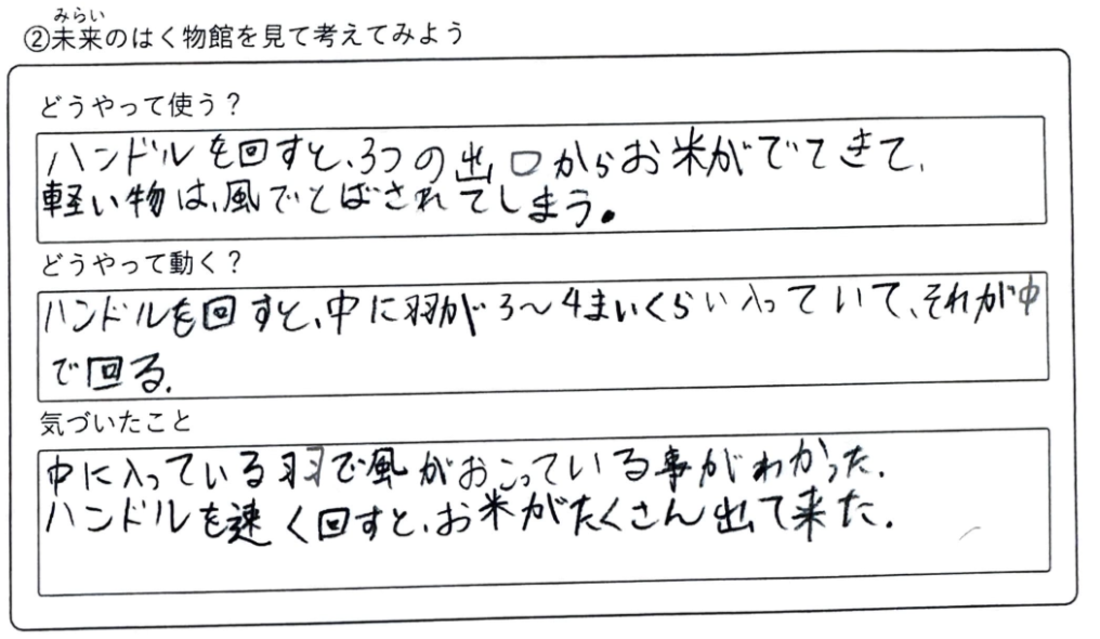 みらい
②未来のはく物館を見て考えてみよう
どうやって使う？
ハンドルを回すと、3つの出口からお米がでてきて、
軽い物は、風でとばされてしまう。
どうやって動く？
ハンドルを回すと、中に羽が3～4まいくらい入っていて、それが中
で回る。
気づいたこと
中に入っている羽で風がおこっている事がわかった。
ハンドルを速く回すと、お米がたくさん出て来た。